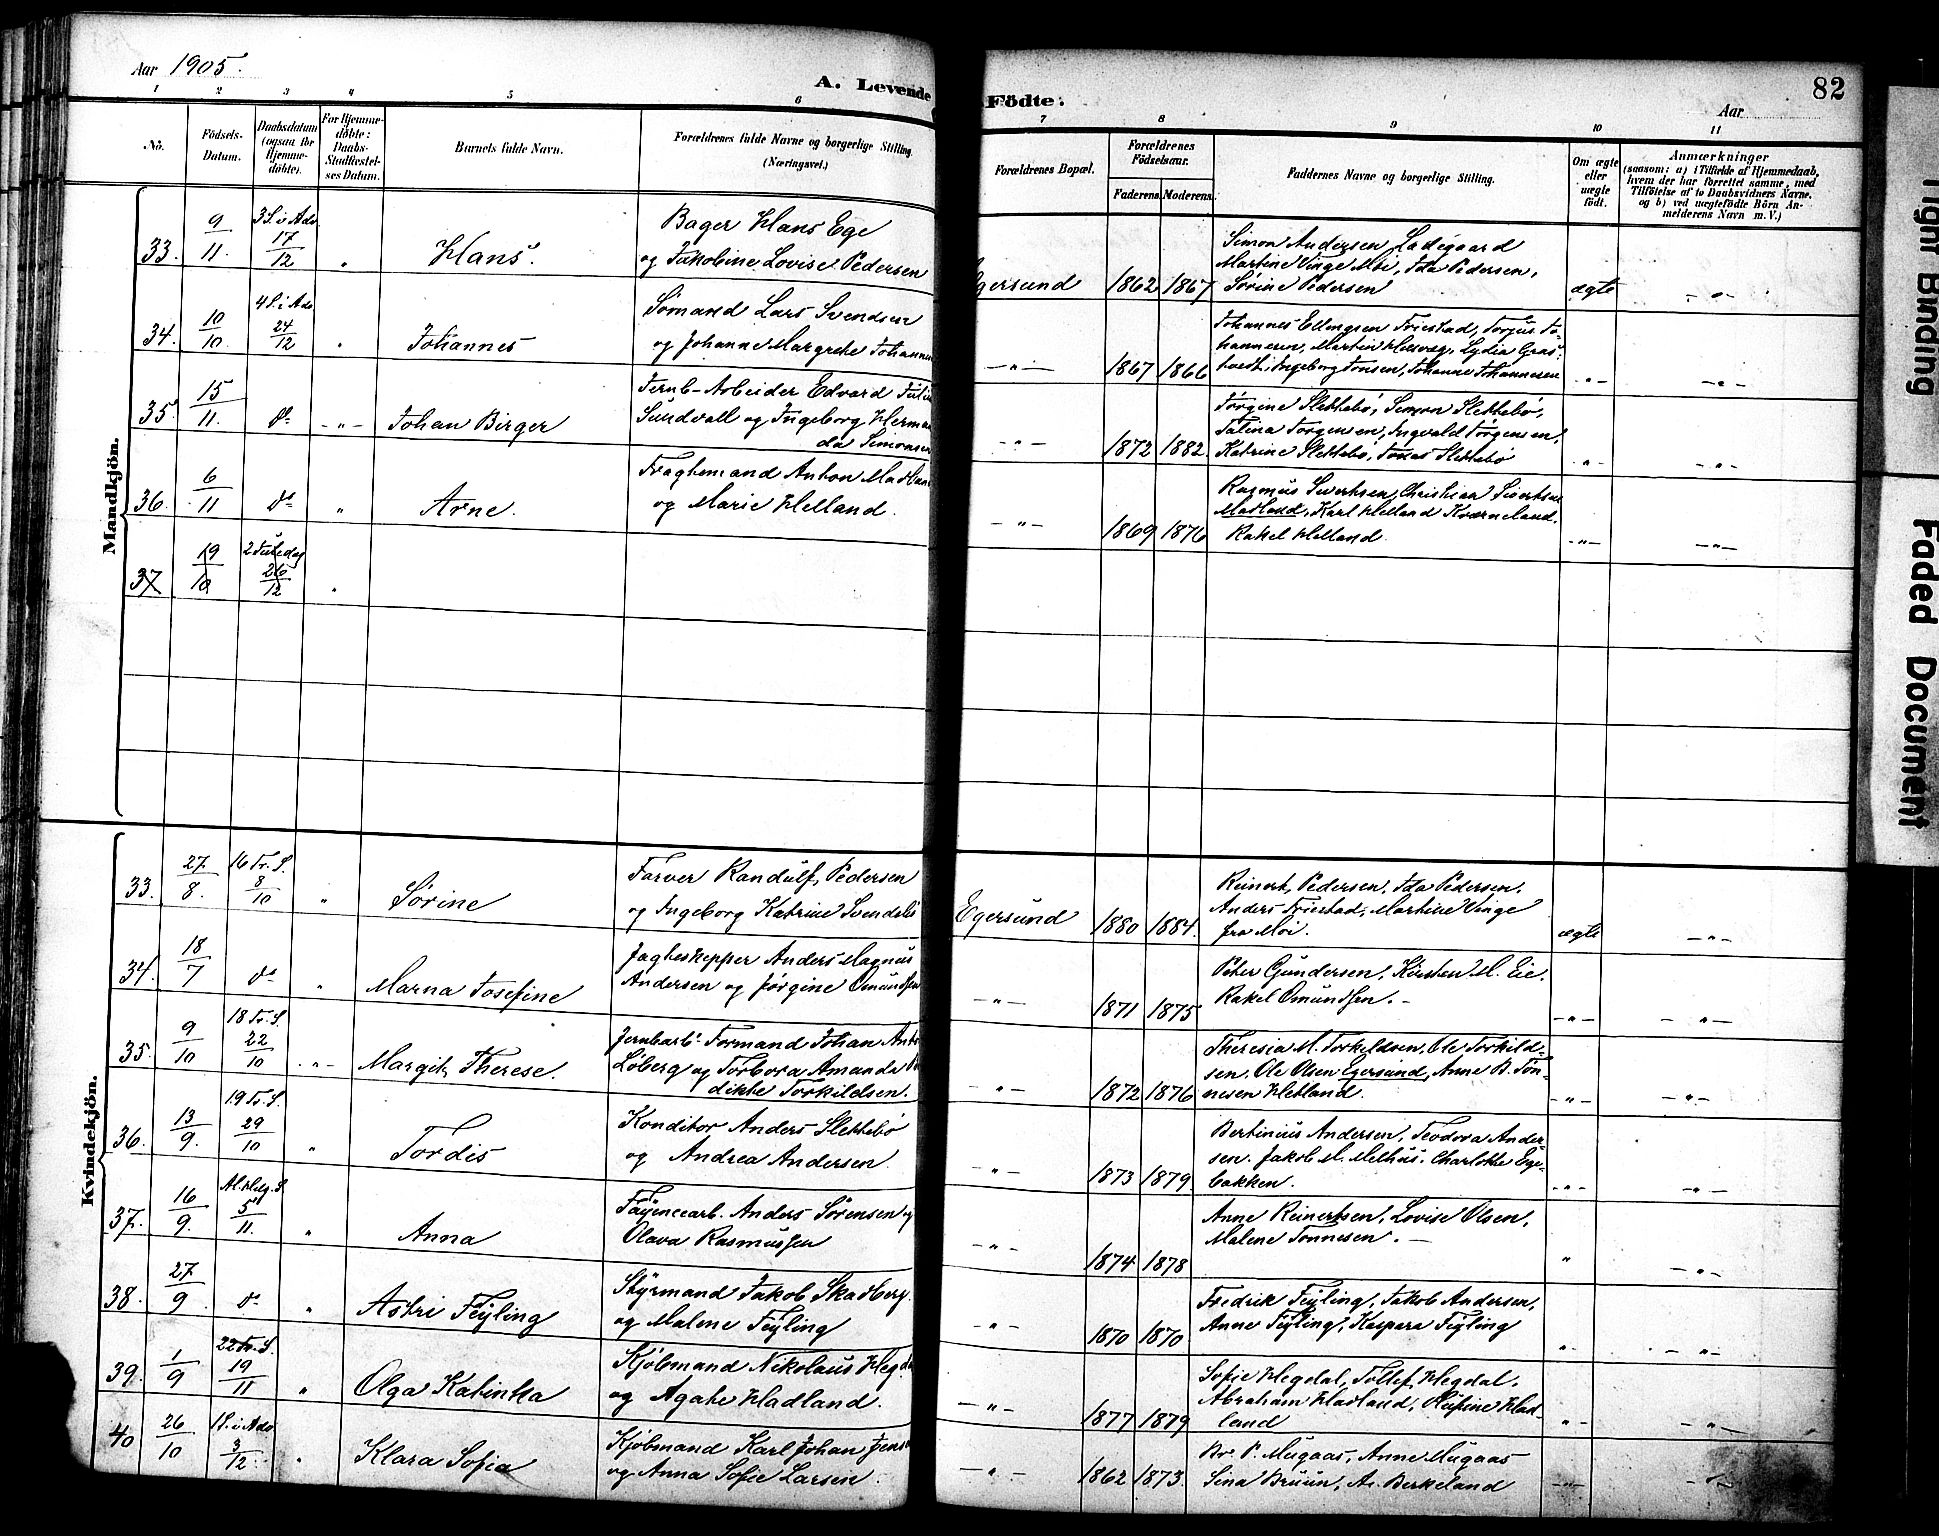 Aar 1905.
A. Levende Födte.
82
Aar
1 2 3 4 5 6 7 8 9 10 11
No.
Födsels-Datum.
Daabsdatum (ogsaa for Hjemme-döbte).
For Hjemme-döbte: Daabs-Stadfæstel-ses Datum.
Barnets fulde Navn.
Forældrenes fulde Navne og borgerlige Stilling. (Næringsvei.)
Forældrenes Bopæl.
Forældrenes Födselsaar.
Faderens. Moderens.
Faddernes Navne og borgerlige Stilling.
Om ægte eller uægte födt.
Anmærkninger
(saasom: a) i Tilfælde af Hjemmedaab,
hvem der har forrettet samme, med
Tilföielse af to Daabsvidners Navne.
og b) ved uægtefödte Börn An-
melderens Navn m. V.)
Mandkjön.
33. 9/11. 3 S. i Adv. 17/12 " Hans. Bager Hans Ege
og Jakobine Lovise Pedersen
Egersund 1862 1867 Simon Andersen Ladegaard
Martine Vinge Moi, Ida Pedersen,
Sørine Pedersen ægte – " –
34. 10/10. 4 S. i Adv. 24/12 " Johannes Sømand Lars Svendsen
og Johanne Margrethe Johannes
– " – 1867 1866 Johannes Ellingsen Friestad, Torjus Jo-
hannesen, Martin Helsvig, Lydia Gras-
tvedt, Ingeborg Jonsen, Johanne Johannesen – " – – " –
35. 15/11. do – " – Johan Birger Jernb-Arbeider Edvard Juli
Sundvall og Ingeborg Herman
da Simonsen
– " – 1872 1882. Jørgine Slettebø, Simon Slettebø,
Talina Jørgensen, Ingvald Jørgensen,
Katrine Slettebø, Jonas Slettebø – " – – " –
36. 6/11 do " Arne. Fragtemand Anton Madland
og Marie Helland.
– " – 1869 1876 Rasmus Sivertsen, Christian Sivertsen
Madland, Karl Helland Kverneland.
Rakel Helland. – " – – " –
37 19/10 2 Juledag 26/12 "
Kvindekjön.
33. 27/8. 16 Tr. S. 8/10 " Sørine Farver Randulf Pedersen
og Ingeborg Katrine Svendsen
Egersund 1880 1884. Reinert Pedersen, Ida Pedersen,
Anders Friestad, Martine Vinge
fra Moi. ægte – " –
34. 18/7 do " Marna Josefine Jagteskipper Anders Magnus
Andersen og Jørgine Omundsen
– " – 1871 1875 Peter Gundersen, Kirsten M. Eie.
Rakel Omundsen. – – " – – " –
35. 9/10 18 Tr. S. 22/10 – " – Margit Therese. Jernbarb. Formand Johan Ant
Løberg og Torbora Amanda
dikte Torkildsen.
– " – 1872 1876 Theresia M. Torkildsen, Ole Torkild-
sen, Ole Olsen Egersund, Anne B. Tøn-
nesen Hetland. – " – – " –
36. 13/9. 19 Tr. S. 29/10 " Tordis Konditor Anders Slettebø
og Andrea Andersen.
– " – 1873 1879 Bertinius Andersen, Teodora Ander-
sen. Jakob M. Melhus. Charlotte Ege-
bakken. – " – – " –
37. 16/9. Al. Helg. S 5/11. " Anna Fayencearb. Anders Sørensen og
Olava Rasmussen
– " – 1874 1878 Anne Reinertsen, Lovise Olsen,
Malene Tønnesen. – " – " –
38. 27/9 do " Astri Feyling Styrmand Jakob Skadberg
og Malene Feyling
– " – 1870 1870 Fredrik Feyling, Jakob Andersen,
Anne Feyling, Kaspara Feyling " – " –
39. 1/9 22 Tr. S. 19/11 " Olga Katinka Kjøbmand Nikolaus Hegd
og Agathe Hadland.
– " – 1877 1879 Sofie Hegdal, Tollef Hegdal,
Abraham Hadland, Rufine Had-
land – " – – " –
40 26/10 1 S. i Adv 3/12. " Klara Sofia Kjøbmand Karl Johan Jens
og Anna Sofie Larsen.
– " – 1862 1873. Br. P. Mugaas, Anne Mugaas
Sina Bruun, A. Berkeland – " – – " –
Tight Binding
Faded Document